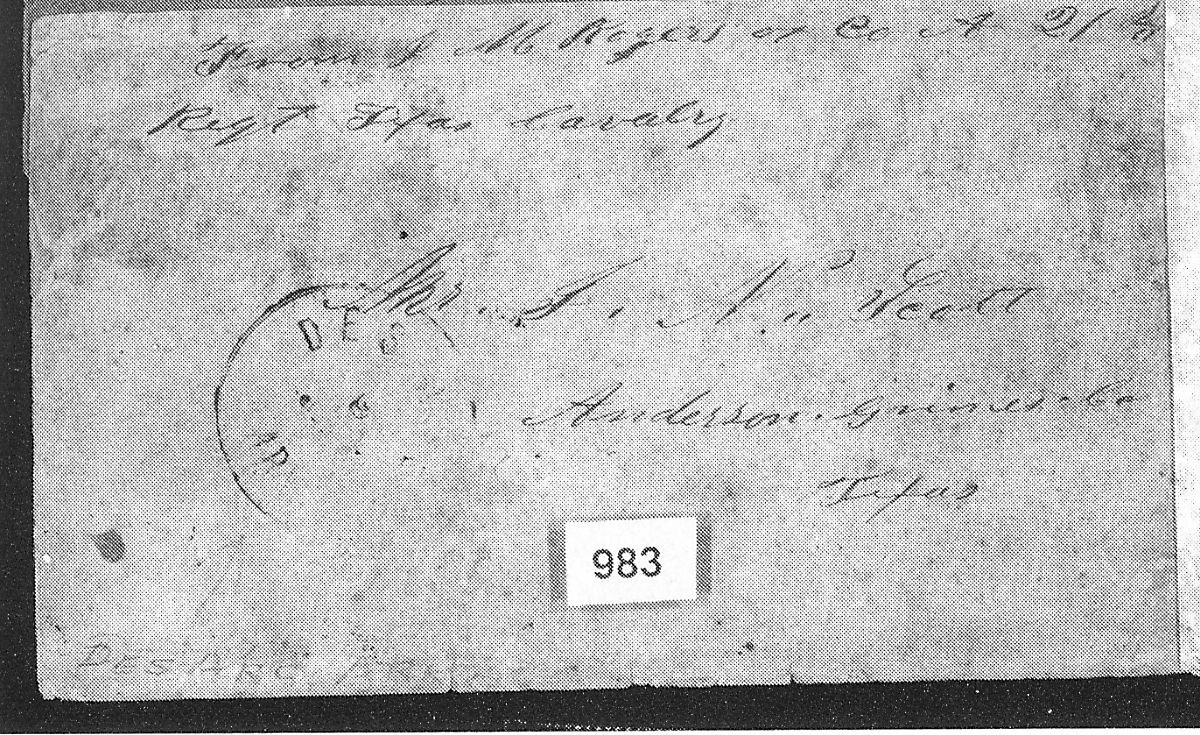 From J M Rogers of Co A 21st
Regt Texas Cavalry
Mr. S. N. Scott
DES
Anderson Grimes Co
Texas
983
DES ARC ARK